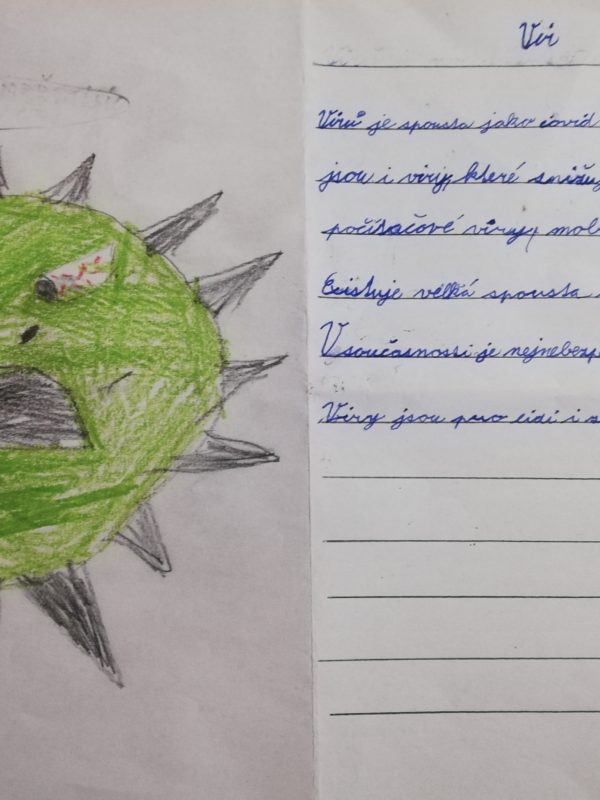 Virů je spousta jako covid
jsou i viry, které
počítačové viry,
Existuje velká spousta
V současnosti je
Viry jsou pro lidi i